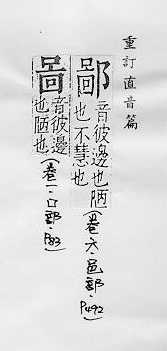 重訂直音篇
鄙音彼邊也陋也不慧也(卷六·邑部·P492)
啚音彼邊也陋也(卷一·口部·P83)